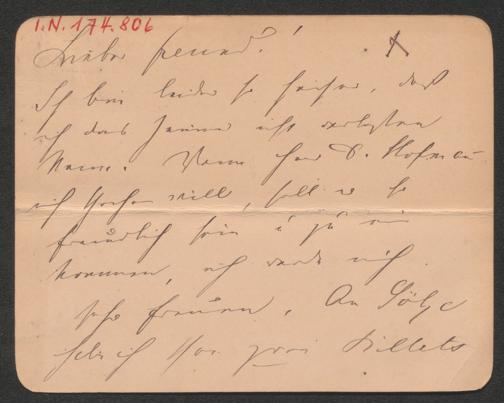 I.N. 174.806
Lieber Freund!
Ich bin leider so heiser, daß
ich das Zimmer nicht verlassen
kann. Wenn Herr D. Hofmann
mich sprechen will, soll er so
freundlich sein u zu mir
kommen, ich werde mich
sehr freuen. An Gölze
habe ich schon zwei Billets